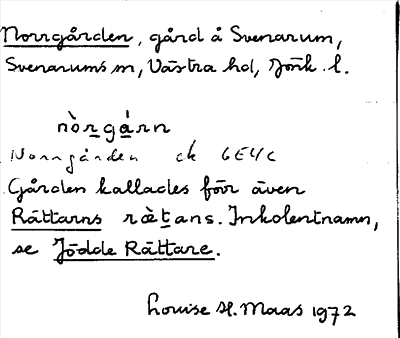 Norrgården, gård å Svenarum,
Svenarums sn, Västra hd, Jönk. l.
nòrgárn
Norrgården ck 6E4c
Gården kallades förr även
Rättarns rætans. Inkolentnamn,
se Jödde Rättare.
Louise H. Maas 1972